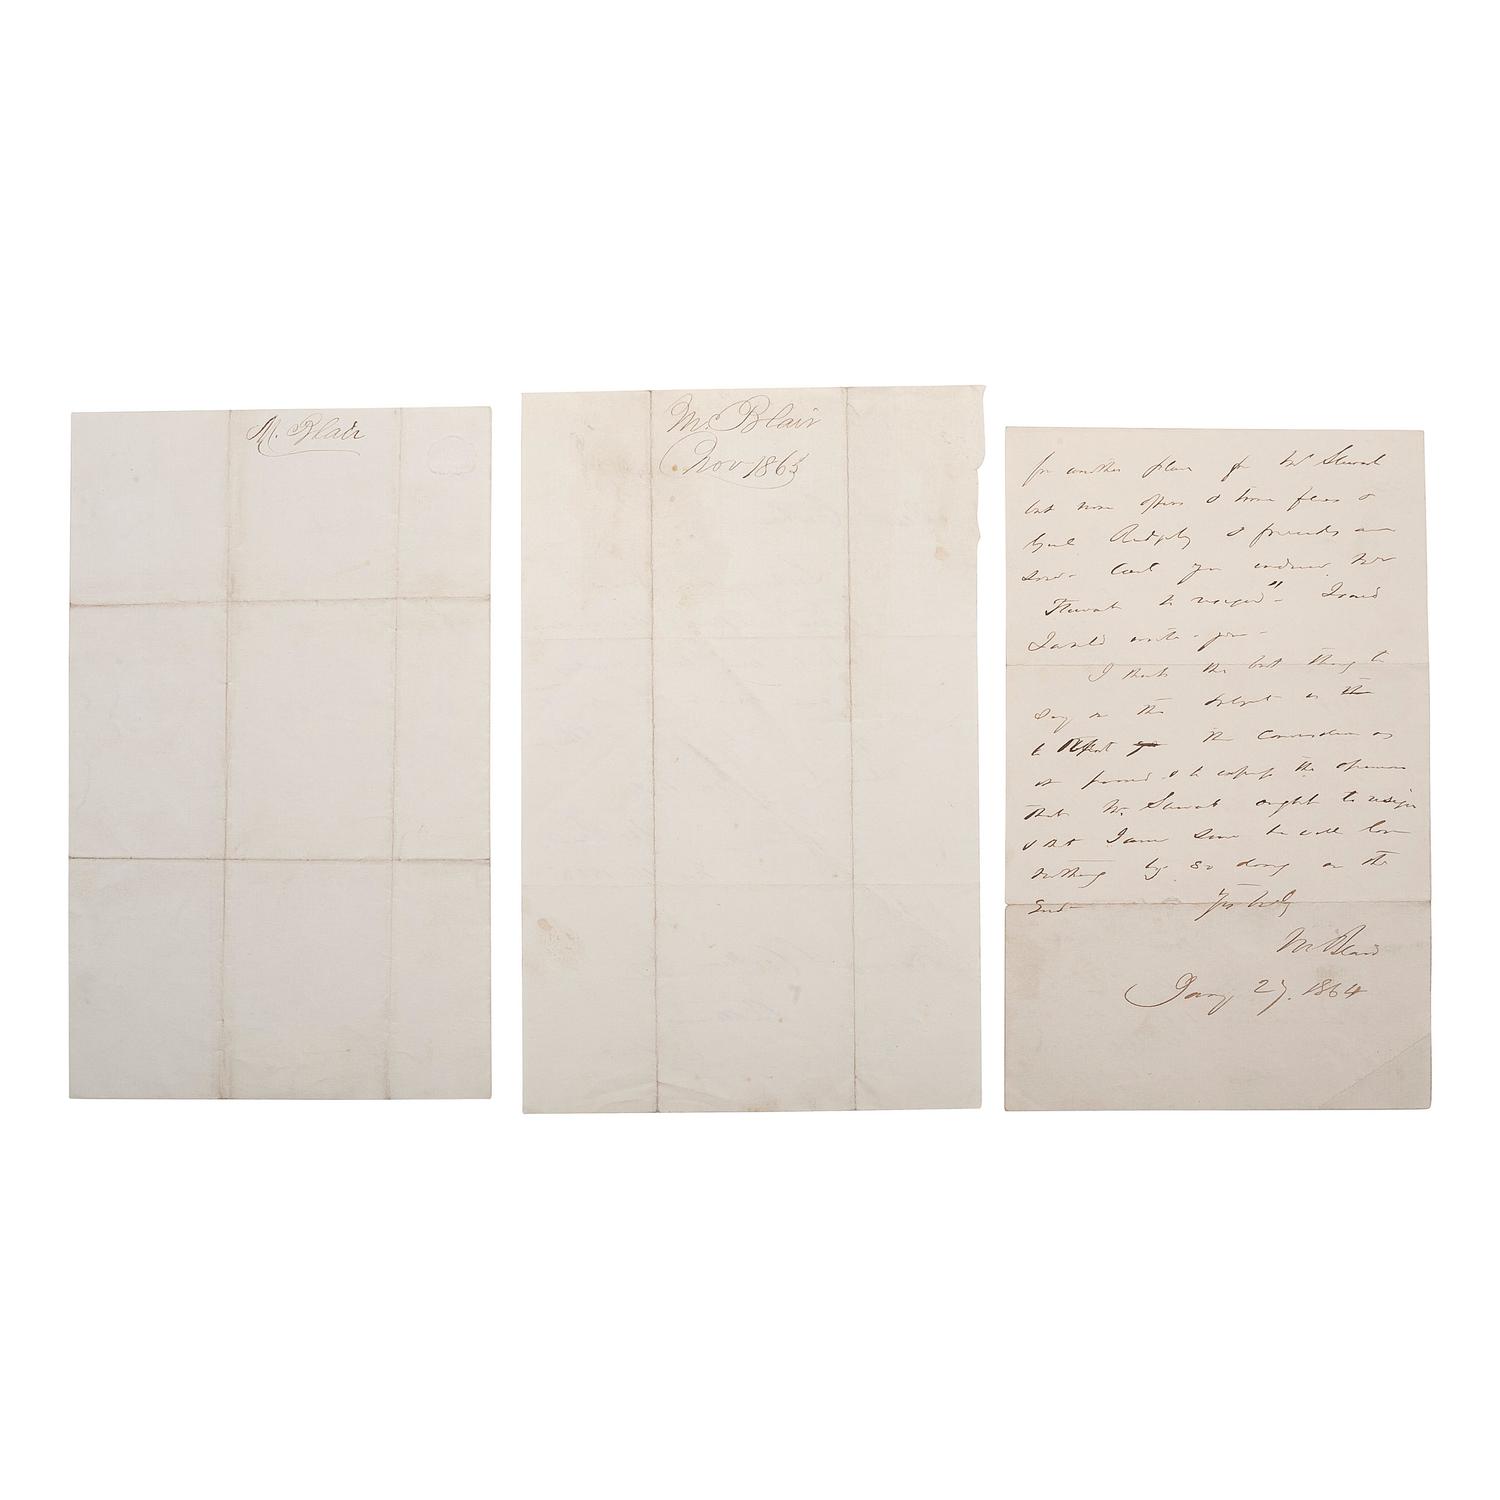 M. Blair
M. Blair
Nov 1863
for another place for Mr Stewart
but none offers &
& friends are
Could you induce Mr
Stewart to resign" - I said
I would write you -
I think the best thing to
say on the subject is
to the conversation as
it passed & to express the opinion
that Mr Stewart ought to resign
& that I am sure he will lose
nothing by so doing in the
End - Yrs truly
M Blair
Jany 27. 1864